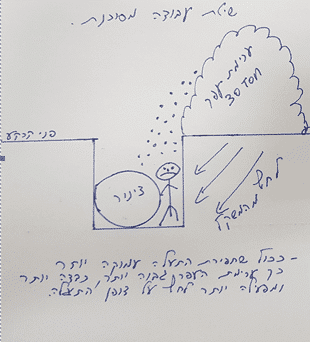 שיטת עבודה מסוכנת.
ערימת עפר
30 TON
פני קרקע
צינור
לחץ
מהמשקל
- ככול שחפירת התעלה עמוקה יותר
כך ערימת העפר גבוה יותר, כבדה יותר
ומפעילה יותר לחץ על דופן התעלה.